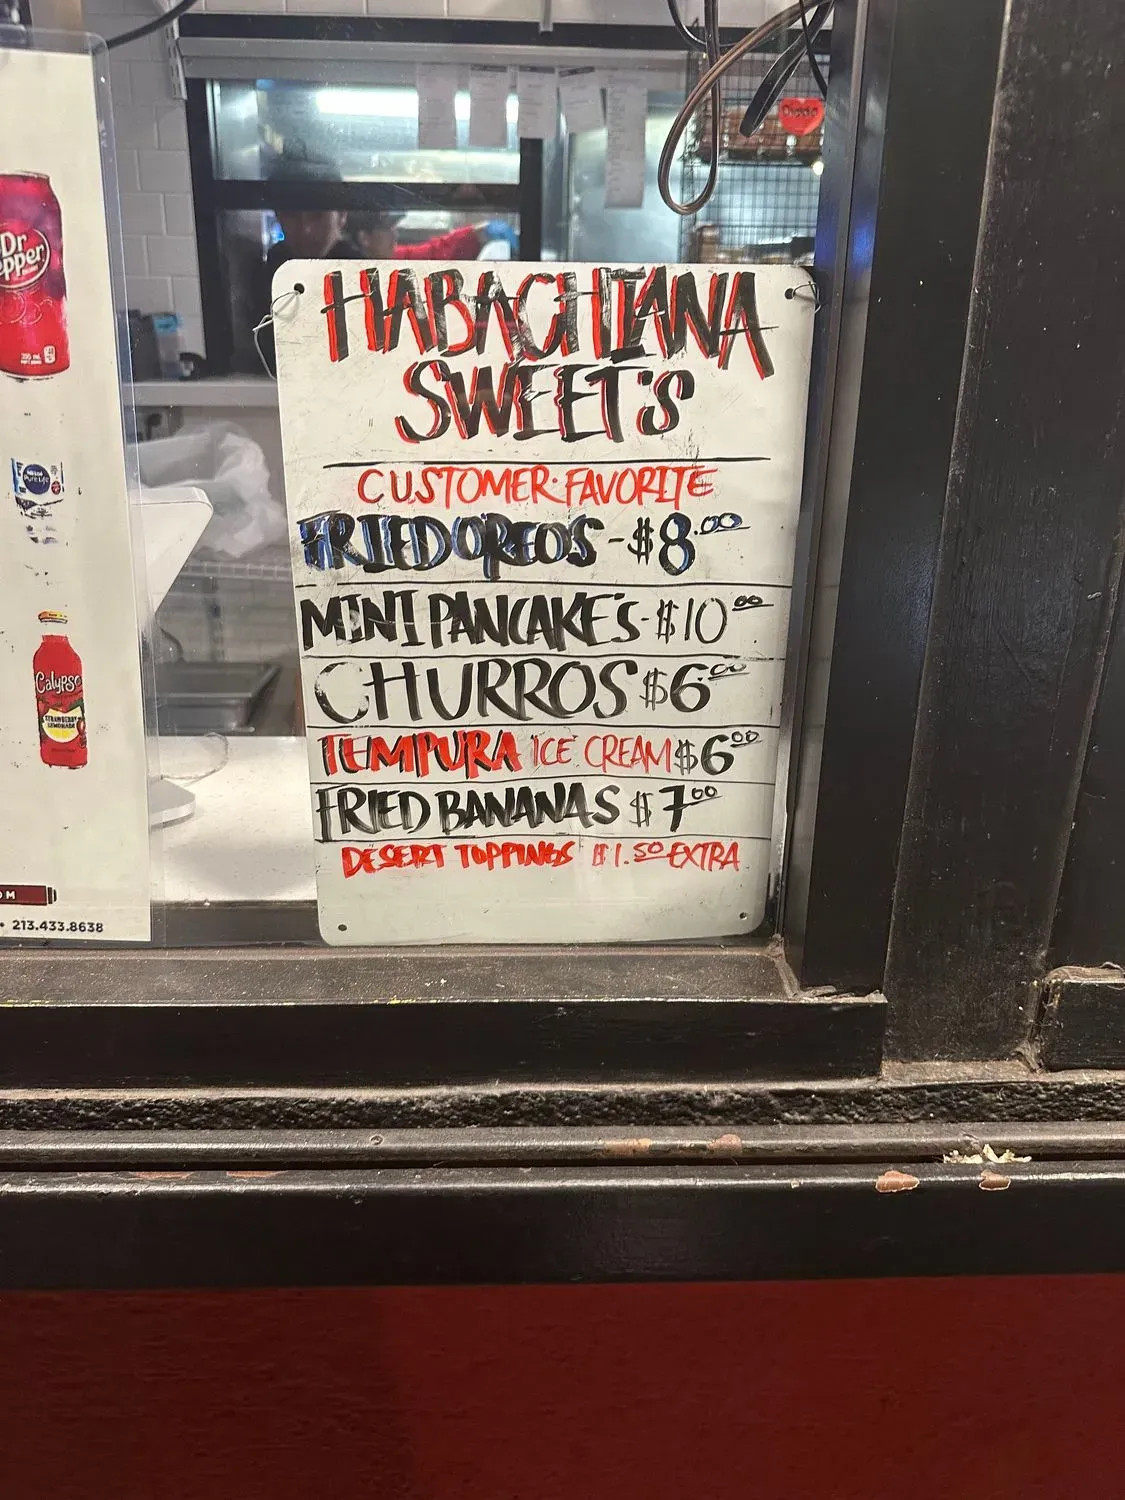 Dr
epper
Nestlé
Pure Life
Calypso
STRAWBERRY
LEMONADE
OM
• 213.433.8638
HABACHIANA
SWEET'S
CUSTOMER·FAVORITE
FRIED OREOS - $8.00
MINI PANCAKE'S - $10.00
CHURROS $6.00
TEMPURA ICE CREAM $6.00
FRIED BANANAS $7.00
DESERT TOPPINGS $1.50 EXTRA